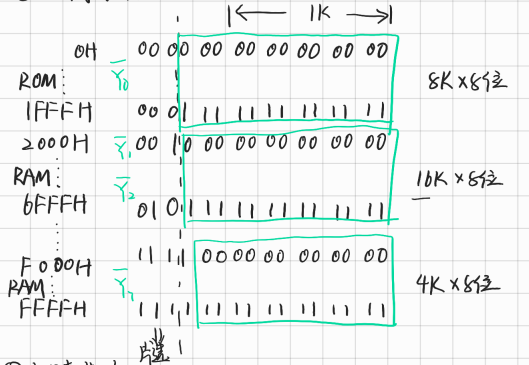 1K
0H 00 00 00 00 00 00 00 00
ROM Y̅₀ 8K×8位
1FFFH 00 01 11 11 11 11 11 11
2000H Y̅₁ 00 10 00 00 00 00 00 00
RAM Y̅₂ 16K×8位
6FFFH 01 01 11 11 11 11 11 11
F000H 11 11 00 00 00 00 00 00
RAM Y̅₇ 4K×8位
FFFFH 11 11 11 11 11 11 11 11
片选